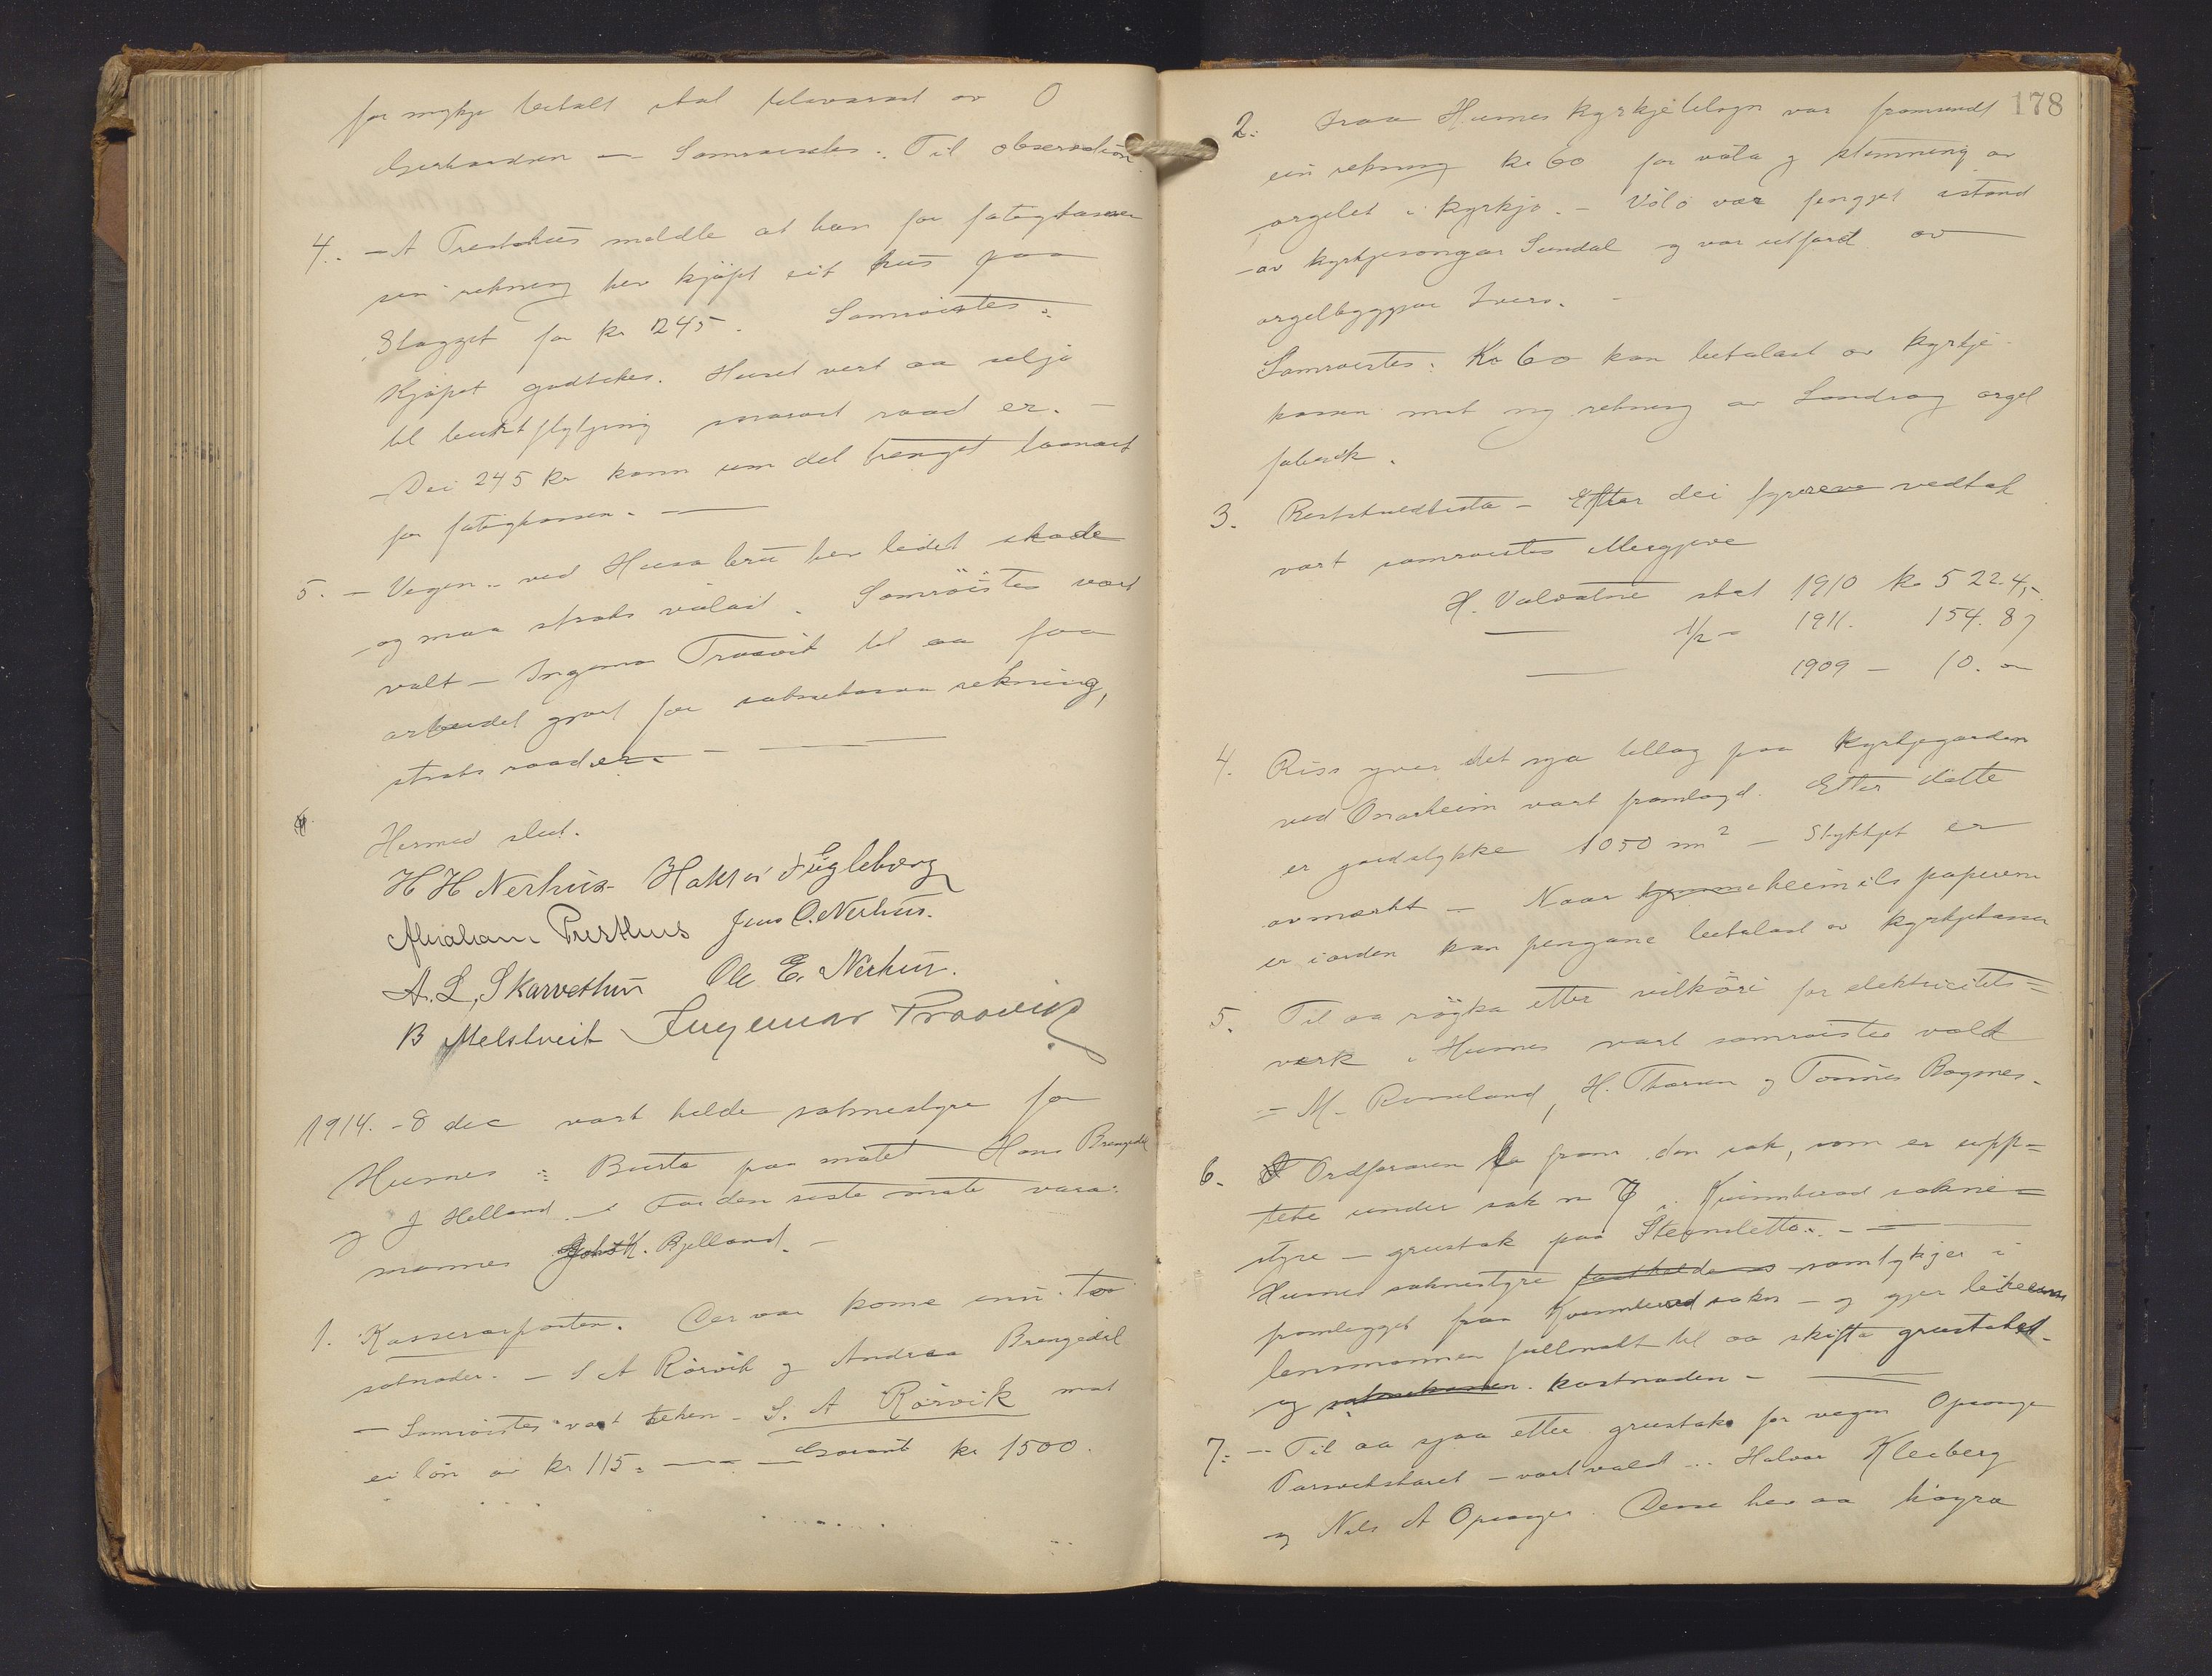 for mykje betalt skal tilsvarast av O
Gerhardsen — Samrøistes. Til observation
4. — A Prestshus meldte at han for fatigkassen
sin rekning hev kjøpt eit hus paa
Slagget for kr 245. Samrøistes:
Kjøpet godtekes. Huset vert aa selja
til burtflytjing snarast raad er. —
— Dei 245 kr kann um det trengst laanast
for fatigkassen. —
5. — Vegen ved Husa bru hev leidet skade
og maa straks vølast. Samrøistes vart
valt — Ingemar Traavik til aa faa
arbeidet gjort for soknekassa rekning,
straks raad er. — —
Hermed slut.
H H Nerhus Haktor Fugleberg
Abraham Presthus Jens O. Nerhus.
A. L. Skarvethun Ole E. Nerhus.
B Melstveit Ingemar Traavik
1914. - 8 dec vart helde soknestyre for
Humes : Burte paa møtet Hans Brengedal
og J Helland — For den siste møtte vara-
mannes Johs K. Bjelland. —
1. Kassererposten. Der var kome inn to
søknader. — S A Rørvik og Andrea Brengedal
— Samrøistes vart teken — S. A Rørvik mot
ei løn av kr 115. — — Garanti kr 1500.
178
2. Fraa Humes kyrkjetilsyn var framsendt
ein rekning kr 60 for vøla og stemning av
orgelet i kyrkja. — Vølo var fenget istand
av kyrkjesongar Sundal og var utført av
orgelbyggjar Ivers.
Samrøistes: Kr 60 kan betalast av kyrkje-
kassen mot ny rekning av orgel
fabrik.
3. Restskuldlista — Efter dei fyrreve vedtak
vart samrøistes Meergjeve
H. Valvatne skat 1910 kr 522.45
— 1/2 — 1911. 154.87
— 1909 — 10. 00
4. Riss yver det nya tillag paa Kyrkjegarden
ved Onarheim vart framlagd. Etter dette
er gardstykke 1050 m² — Stykkjet er
avmerkt — Naar heimils papirene
er iorden kan pengane betalast av kyrkjekassen
5. Til aa røgka etter vilkøri for elektricitets=
verk i Humes vart samrøistes vald
= M. Roseland, H. Thoresen og Tomnes Bogsnes.
6. Ordføraren la fram den sak, som er upp=
teke under sak nr 7 i Kvinnherad sokne=
styre — grustak paa Stegnsletta. — —
Humes soknestyre fastholder samtykjer i
framlegget fraa Kvinnherad sokn — og gjer likeeins
lensmannen fullmakt til aa skifta grustaket
og soknekassen. kostnaden — —
7. — Til aa sjaa etter grustak for vegen Opsanger
— vart vald .. Halvor Kleiberg
og Nils A Opsanger. Desse hev aa høyra